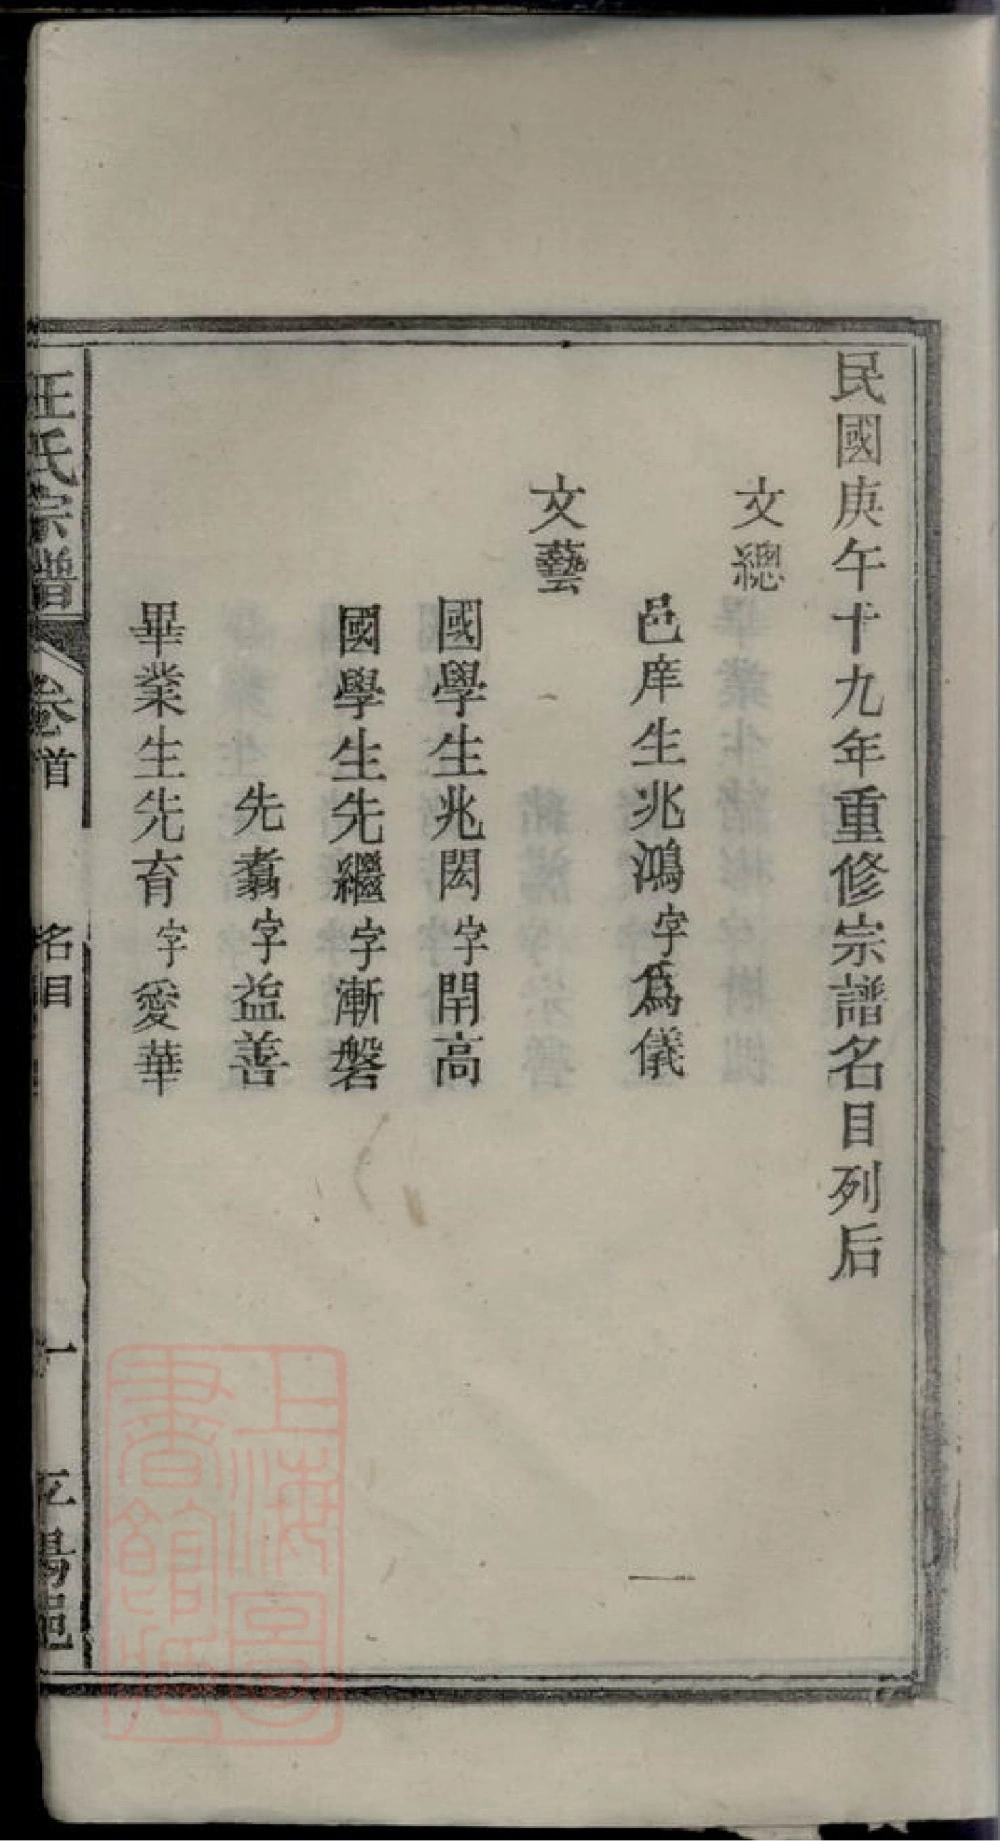 民國庚午十九年重修宗譜名目列后
文總
邑庠生兆鴻字爲儀
文藝
國學生兆閎字閈高
國學生先繼字漸磐
先翥字益善
畢業生先育字愛華
汪氏宗譜 卷首 名目 一 平陽邑
上海圖
書館藏